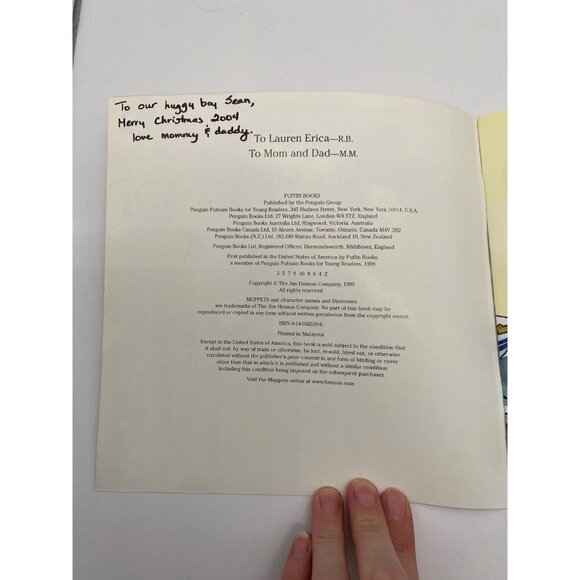 To our huggy boy Sean,
Merry Christmas 2004
love mommy & daddy.
To Lauren Erica—R.B.
To Mom and Dad—M.M.
PUFFIN BOOKS
Published by the Penguin Group
Penguin Putnam Books for Young Readers, 345 Hudson Street, New York, New York 10014, U.S.A.
Penguin Books Ltd, 27 Wrights Lane, London W8 5TZ, England
Penguin Books Australia Ltd, Ringwood, Victoria, Australia
Penguin Books Canada Ltd, 10 Alcorn Avenue, Toronto, Ontario, Canada M4V 3B2
Penguin Books (N.Z.) Ltd, 182-190 Wairau Road, Auckland 10, New Zealand
Penguin Books Ltd, Registered Offices: Harmondsworth, Middlesex, England
First published in the United States of America by Puffin Books,
a member of Penguin Putnam Books for Young Readers, 1999
3 5 7 9 10 8 6 4 2
Copyright © The Jim Henson Company, 1999
All rights reserved
MUPPETS and character names and likenesses
are trademarks of The Jim Henson Company. No part of this book may be
reproduced or copied in any form without written permission from the copyright owner.
ISBN 0-14-056539-6
Printed in Malaysia
Except in the United States of America, this book is sold subject to the condition that
it shall not, by way of trade or otherwise, be lent, re-sold, hired out, or otherwise
circulated without the publisher's prior consent in any form of binding or cover
other than that in which it is published and without a similar condition
including this condition being imposed on the subsequent purchaser.
Visit the Muppets online at www.henson.com